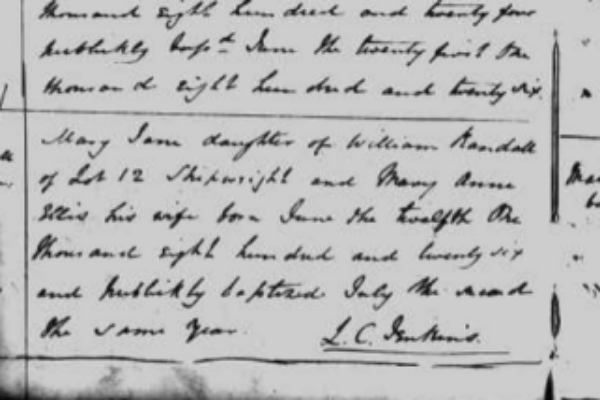 thousand eight hundred and twenty four
publickly bapsd June the twenty first One
thousand eight hundred and twenty six.
Mary Jane daughter of William Randall
of Lot 12 Shipwright and Mary Anne
Ellis his wife born June the twelfth One
thousand eight hundred and twenty six
and publickly baptized July the second
the same year.
L. C. Jenkins.